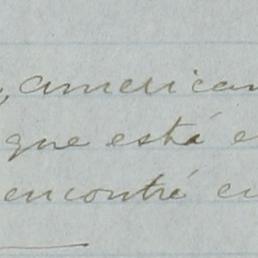 , american
que está e
encontré en